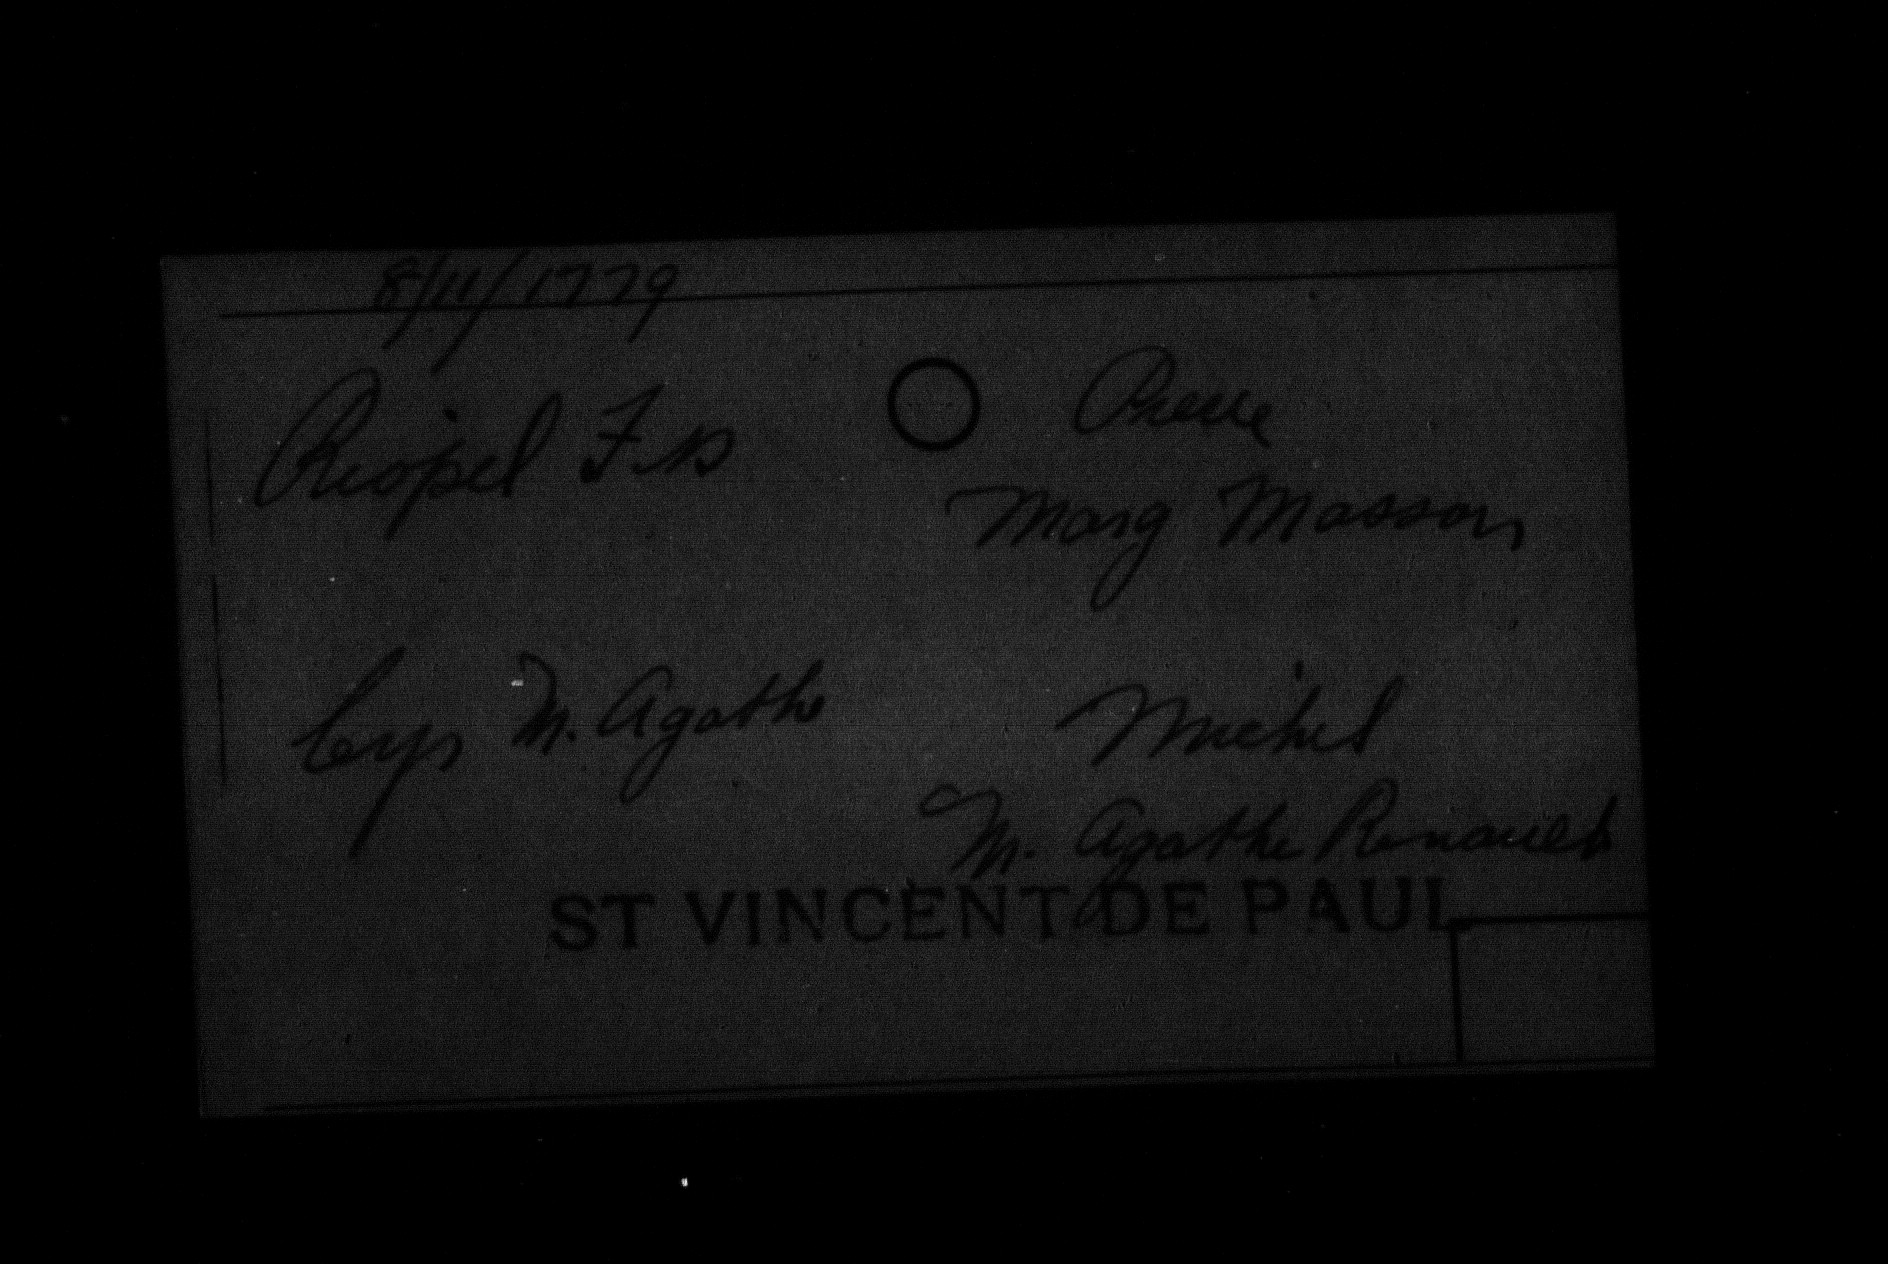 8/11/1779
Riopel F.s Pierre
Marg Masson
Cyr M. Agathe Michel
M. Agathe Renault
ST VINCENT DE PAUL